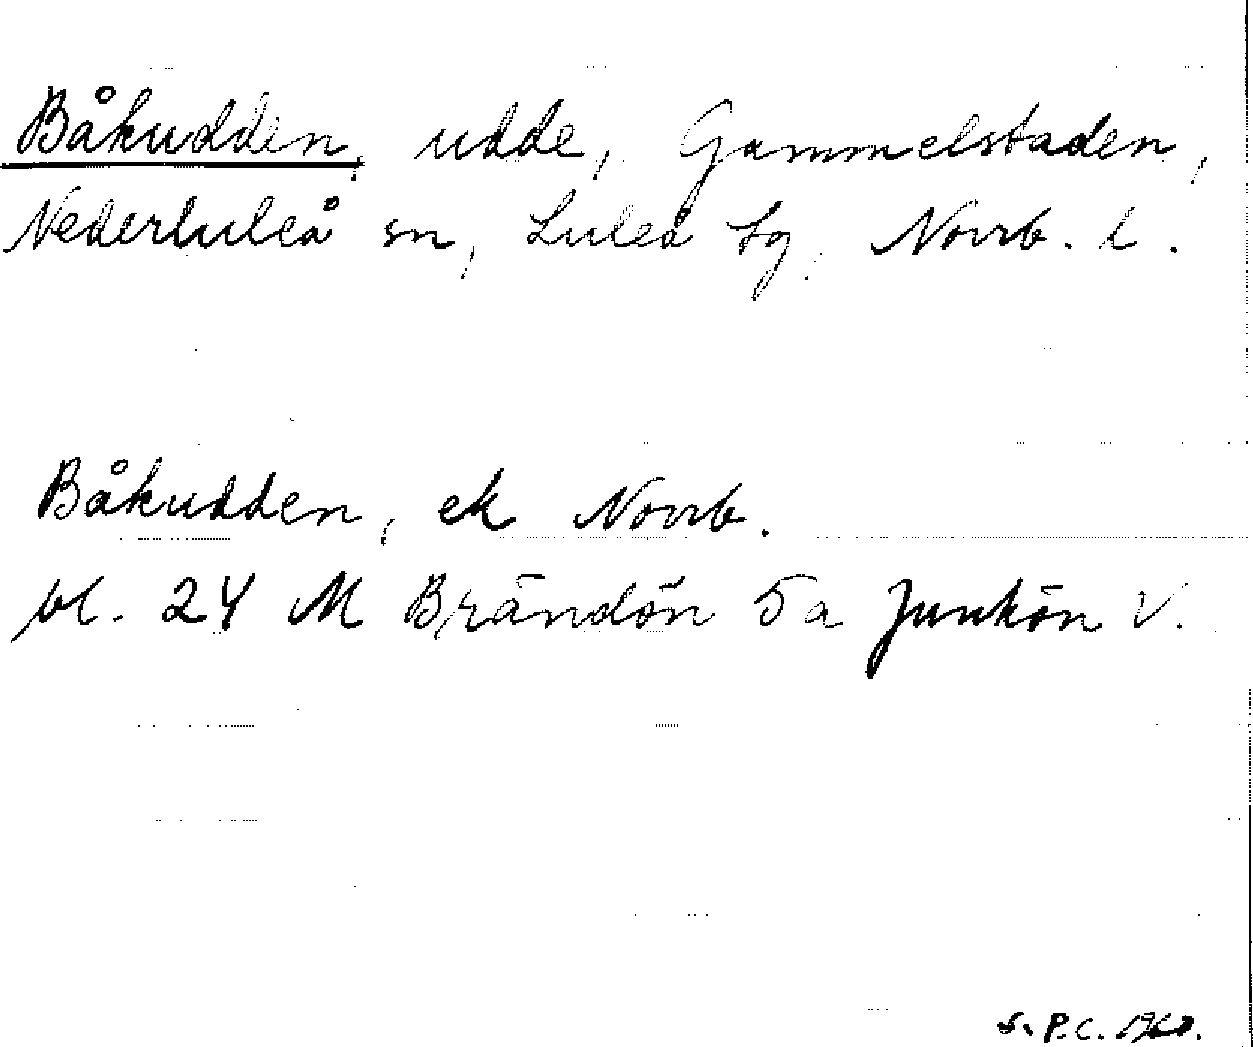 Båkudden, udde, Gammelstaden,
Nederluleå sn, Luleå tg, Norrb. l.
Båkudden, ek Norrb.
bl. 24 M Brändön 5a Junkön V.
S.P.C. 1960.